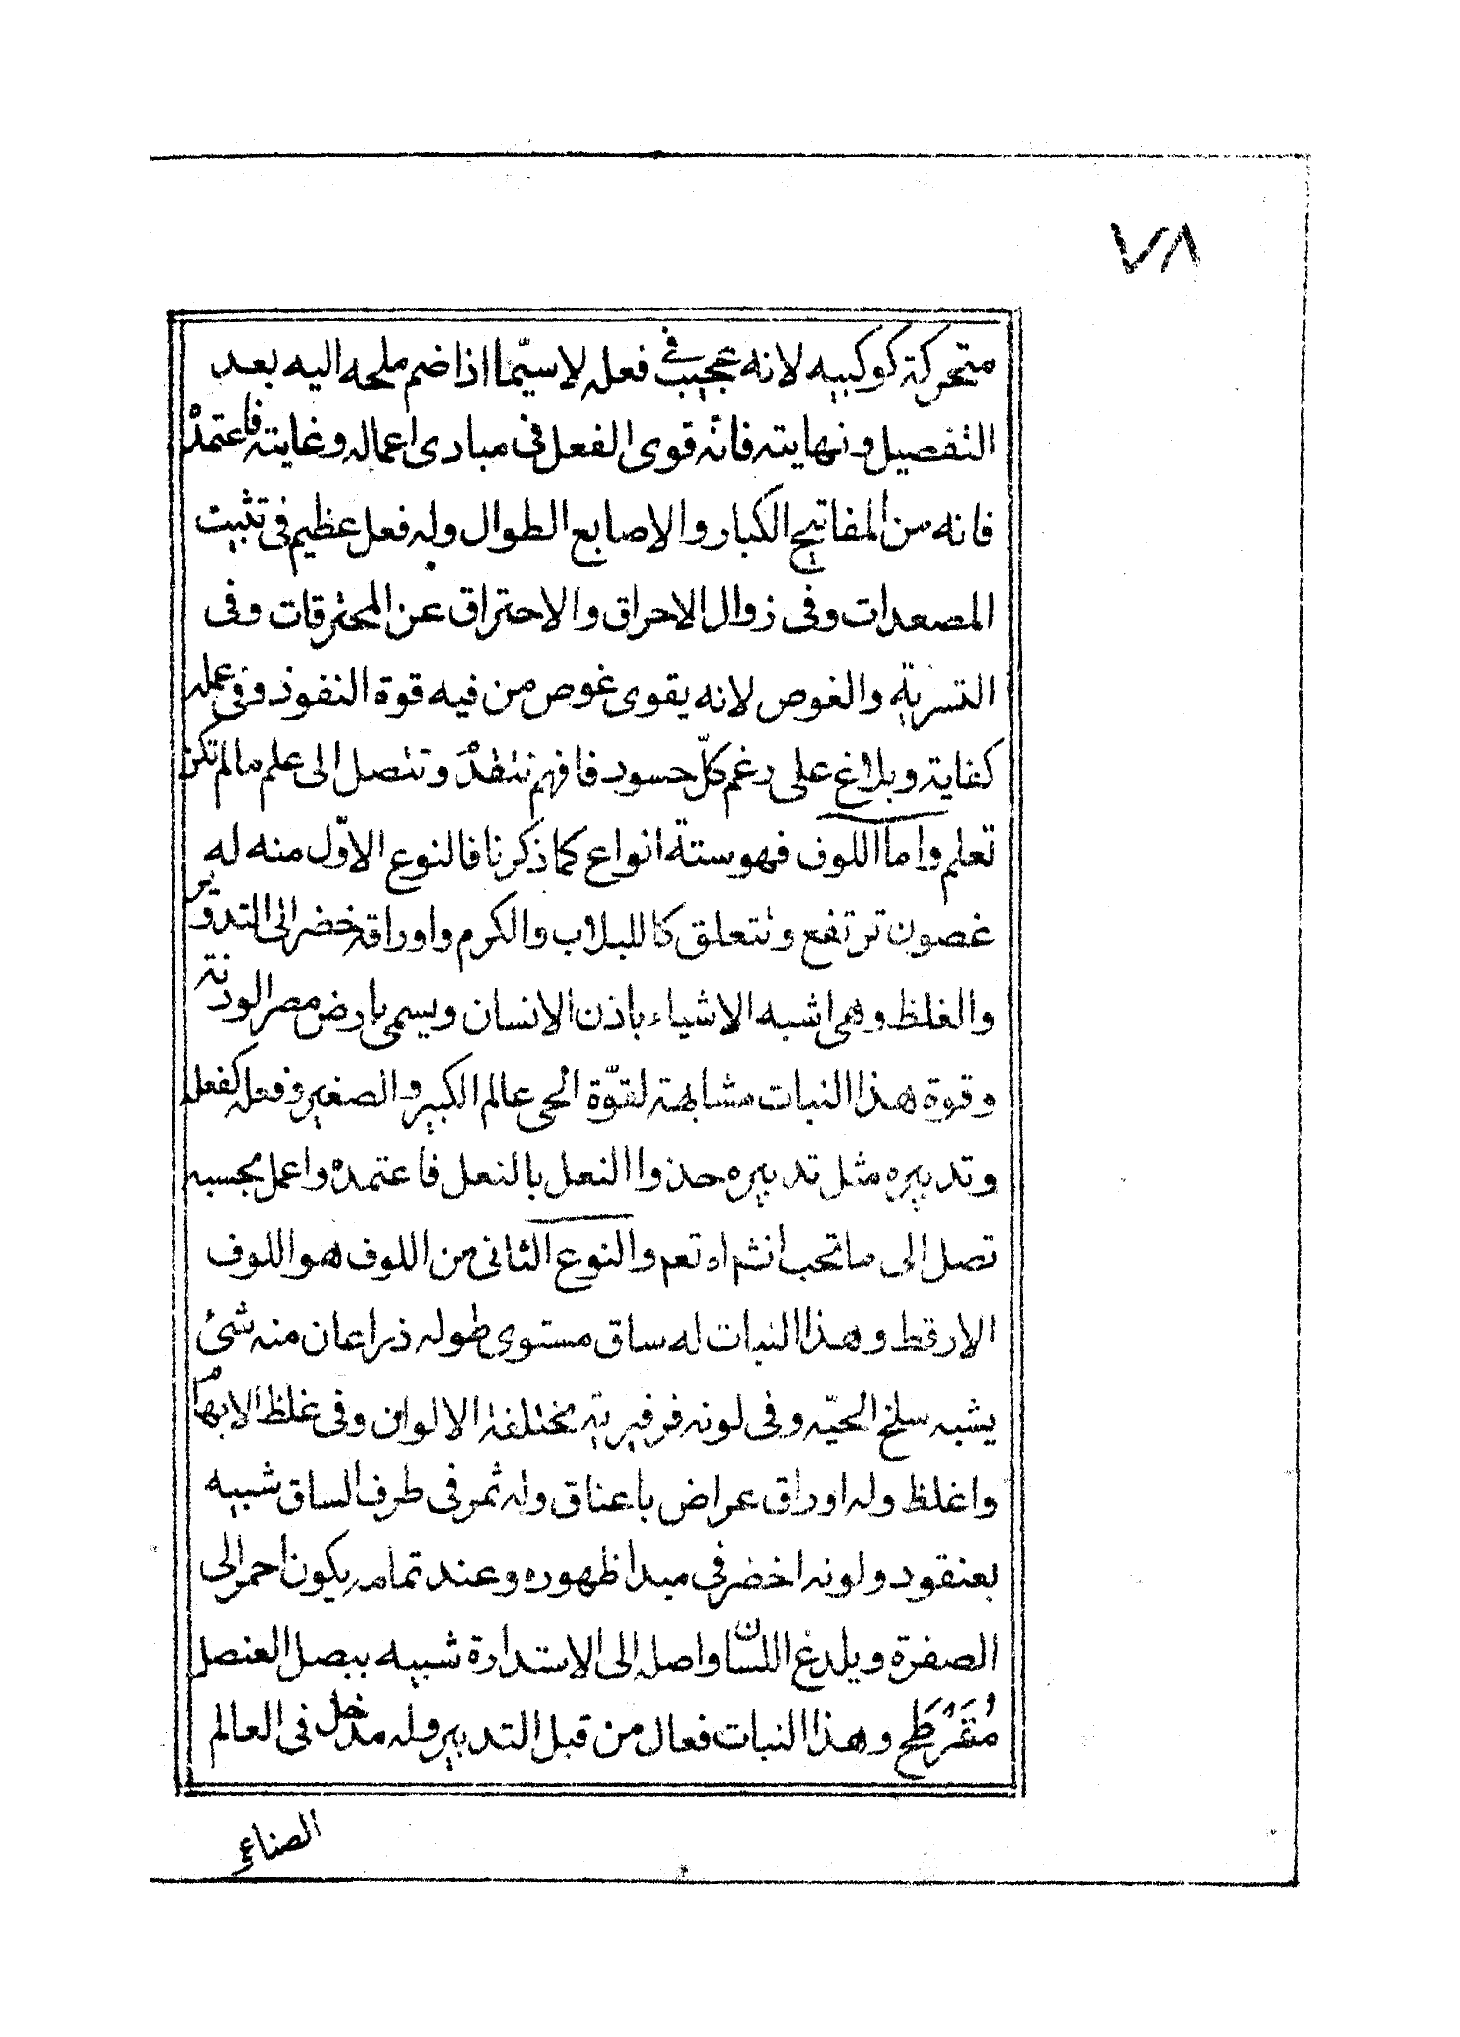 ٧٨
متحركة كوكبيه لانه عجيب في فعله لاسيّما اذا ضم ملحه اليه بعد
التفصيل ونهايته فانه قوى الفعل فى مبادى اعماله وغايته فاعتمدْ
فانه من المفاتيح الكبار والاصابع الطوال وله فعل عظيم فى تثبيت
المصعدات وفى زوال الاحراق والاحتراق عن المحترقات وفى
التسرية والغوص لانه يقوى غوص من فيه قوة النفوذ وفى عمله
كفاية وبلاغ على رغم كلّ حسود فافهم تنفذْ وتتصل الى علم مالم تكن
تعلم واما اللوف فهو ستة انواع كما ذكرنا فالنوع الاوّل منه له
غصون ترتفع وتتعلق كاللبلاب والكرم واوراقه خضر الى التدوير
والغلظ وهى اشبه الاشياء باذن الانسان ويسمى بارض مصر الودنة
وقوة هذا النبات مشابهة لقوّة الحى عالم الكبير والصغير وفعله كفعله
وتدبيره مثل تدبيره حذوا النعل بالنعل فاعتمده واعمل بحسبه
تصل الى ما تحب انشاء تعم والنوع الثانى من اللوف هو اللوف
الارقط وهذا النبات له ساق مستوى طوله ذراعان منه شئ
يشبه سلخ الحيّه وفى لونه فرفيرية مختلفة الالوان وفى غلظ الابهام
واغلظ وله اوراق عراض باعناق وله ثمر فى طرف الساق شبيه
بعنقود ولونه اخضر فى مبدا ظهوره وعند تمامه يكون احمر الى
الصفرة ويلدغ اللسان واصله الى الاستدارة شبيه ببصل العنصل
مُقَرْطَح وهذا النبات فعال من قبل التدبير وله مدخل فى العالم
الصناعى